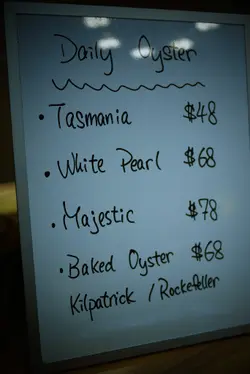 Daily Oyster
• Tasmania $48
• White Pearl $68
• Majestic $78
• Baked Oyster $68
Kilpatrick / Rockefeller